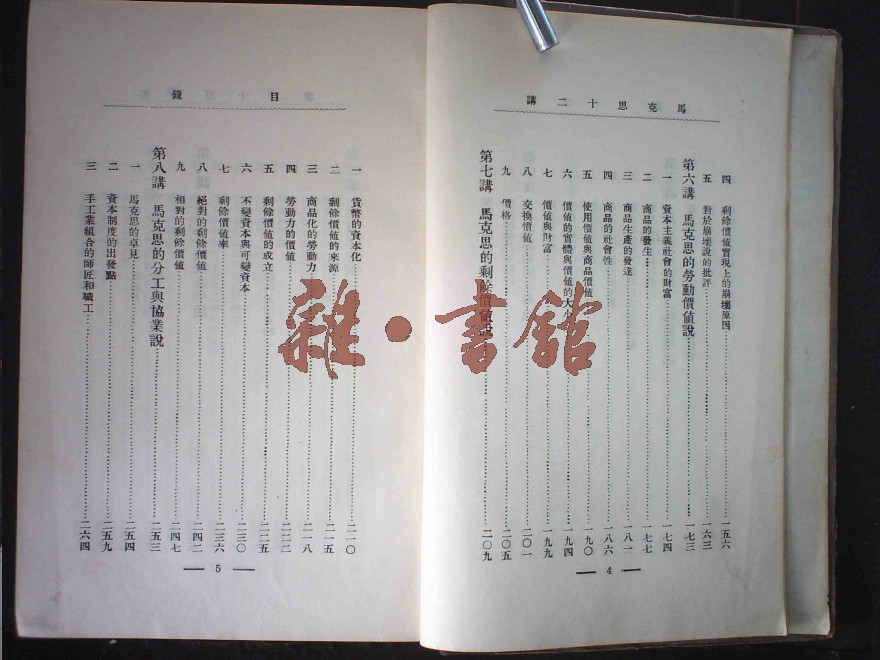 馬克思十二講
四 剩餘價値實現上的崩壞原因 一五六
五 對於崩壞說的批評 一六三
第六講 馬克思的勞動價値說 一七三
一 資本主義社會的財富 一七四
二 商品的發生 一七七
三 商品生產的發達 一八一
四 商品的社會性 一八六
五 使用價値與商品價値 一九〇
六 價値的實體與價値的大小 一九四
七 價値與財富 一九九
八 交換價値 二〇一
九 價格 二〇五
第七講 馬克思的剩餘價値說 二〇九
4
目錄
一 貨幣的資本化 二一〇
二 剩餘價値的來源 二一五
三 商品化的勞動力 二一八
四 勞動力的價値 二二二
五 剩餘價値的成立 二二五
六 不變資本與可變資本 二三〇
七 剩餘價値率 二三六
八 絕對的剩餘價値 二四二
九 相對的剩餘價値 二四七
第八講 馬克思的分工與協業說 二五三
一 馬克思的卓見 二五四
二 資本制度的出發點 二五九
三 手工業組合的師匠和職工 二六四
5
雜·書館